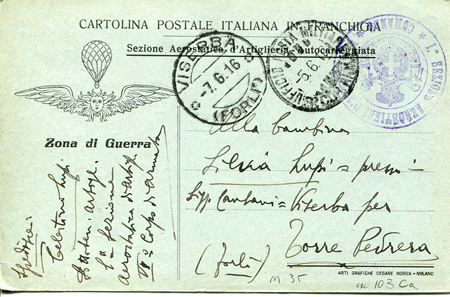 CARTOLINA POSTALE ITALIANA IN FRANCHIGIA
Sezione Aerostatica d'Artiglieria Autocarreggiata
VISERBA
-7.6.16
(FORLI)
POSTA MILITARE
5.6.
COMANDO 1ª SEZIONE AEROSTATICA
Zona di Guerra
Alla bambina
Silvia Lupi = presso =
Sigg Cantani = Viserba per
Torre Pedrera
(Forlì)
Spedisce:
Celestino Lupi
1ª Sezione
Aerostatica d'Artigl
VIº Corpo d'Armata
M 35
103 Ca
ARTI GRAFICHE CESARE NORSA - MILANO